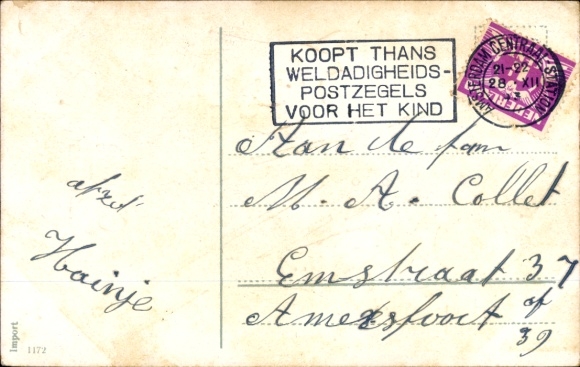 KOOPT THANS
WELDADIGHEIDS-
POSTZEGELS
VOOR HET KIND
AMSTERDAM CENTRAAL-STATION
21-22
28 XII
Aan de fam
M. A. Collet
Emstraat 37
Amersfoort of
39
afz.
Import
1172